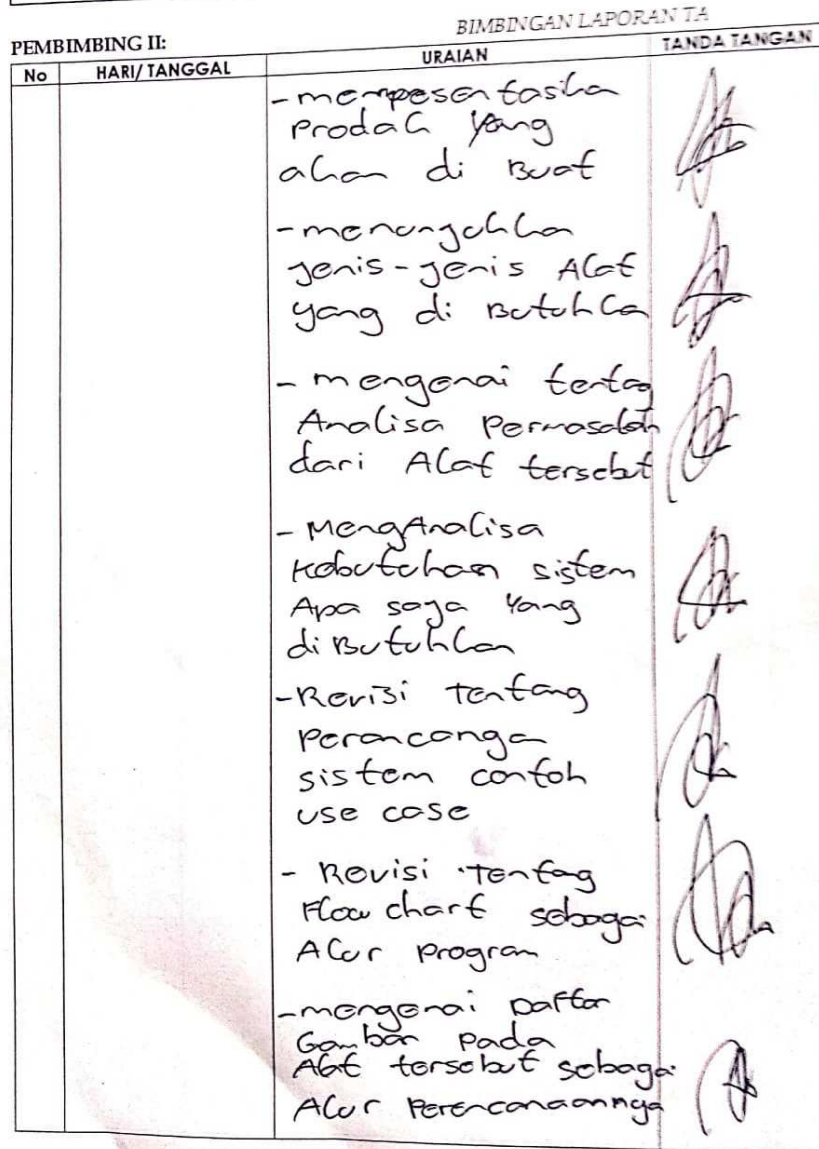 BIMBINGAN LAPORAN TA
PEMBIMBING II:
No HARI/ TANGGAL URAIAN TANDA TANGAN
- mempesentasika
Produk yang
akan di Buat
- menunjukka
jenis-jenis Alat
yang di Butuhka
- mengenai tentag
Analisa Permasalah
dari Alat tersebut
- MengAnalisa
Kebutuhan sistem
Apa saja Yang
di Butuhkan
- Revisi Tentang
Perancanga
sistem contoh
use case
- Revisi Tentag
Flow chart sebagai
Alur Program
- mengenai Daftar
Gambar pada
Alat tersebut sebagai
Alur Perencanaannya